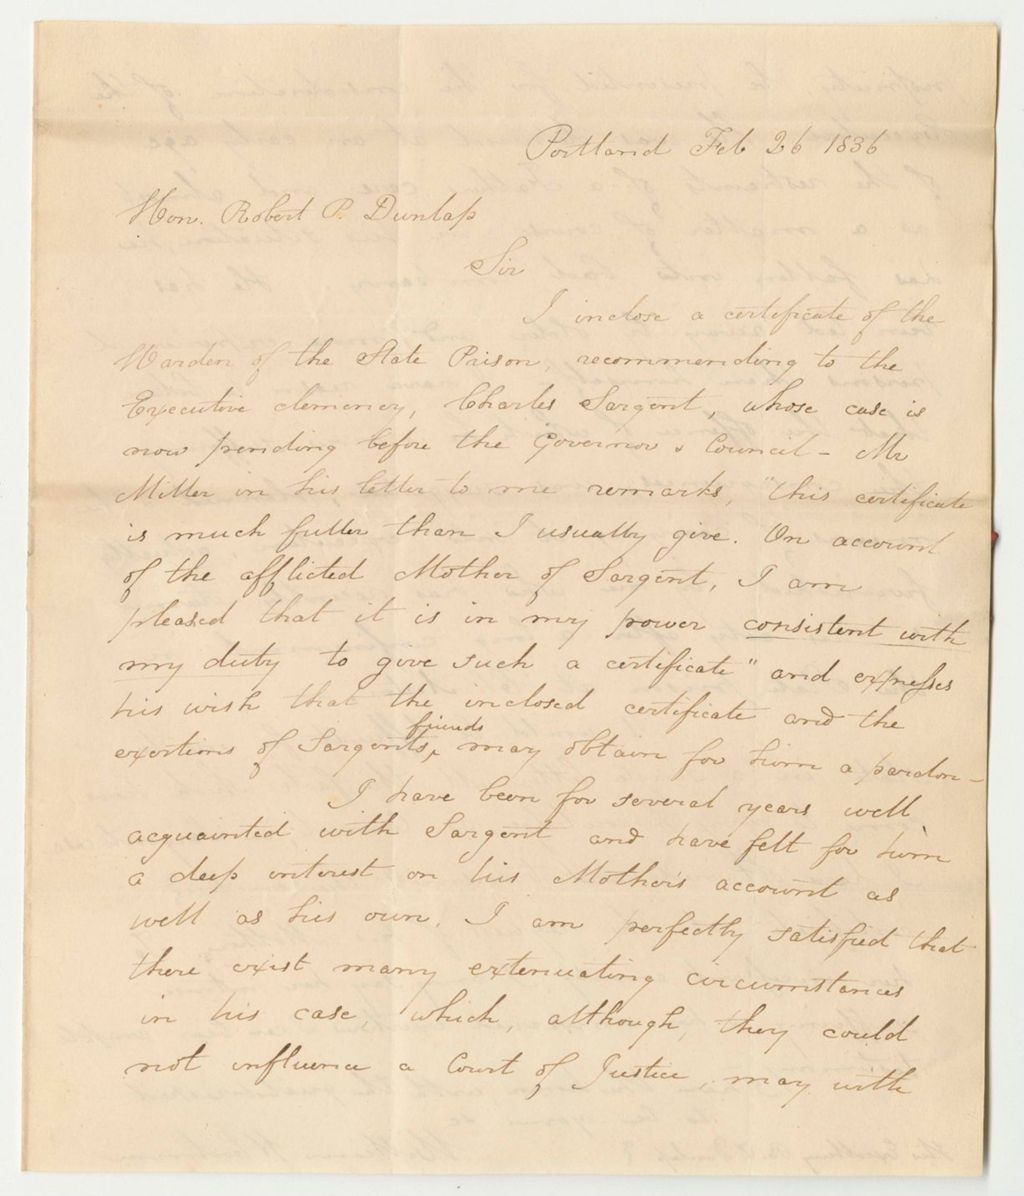 Portland Feb 26 1836
Hon. Robert P. Dunlap
Sir
I inclose a certificate of the
Warden of the State Prison, recommending to the
Executive clemency, Charles Sargent, whose case is
now pending before the Governor & Council - Mr
Miller in his letter to me remarks, "this certificate
is much fuller than I usually give. On account
of the afflicted Mother of Sargent, I am
pleased that it is in my power consistent with
my duty to give such a certificate" and expresses
his wish that the inclosed certificate and the
exertions of Sargents friends may obtain for him a pardon -
I have been for several years well
acquainted with Sargent and have felt for him
a deep interest on his Mother's account as
well as his own. I am perfectly satisfied that
there exist many extenuating circumstances
in his case, which, although, they could
not influence a Court of Justice, may with